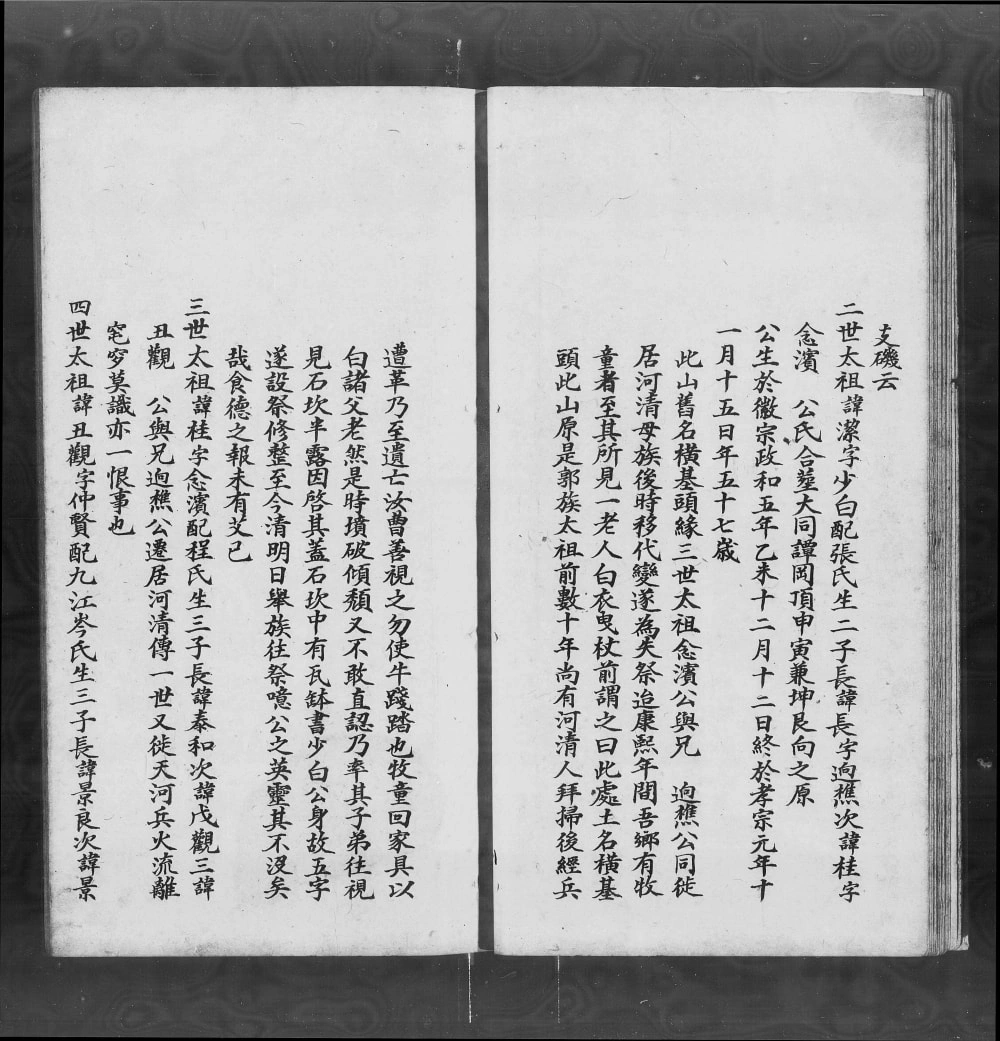 支磯云
二世太祖諱潔字少白配張氏生二子長諱長字逈樵次諱桂字
念濱　公氏合塟大同譚岡頂申寅兼坤艮向之原
公生於徽宗政和五年乙未十二月十二日終於孝宗元年十
一月十五日年五十七歲
此山舊名橫基頭緣三世太祖念濱公與兄　逈樵公同徙
居河清母族後時移代變遂為失祭迨康熙年間吾鄉有牧
童者至其所見一老人白衣曳杖前謂之曰此處土名橫基
頭此山原是郭族太祖前數十年尚有河清人拜掃後經兵
遭革乃至遺亡汝曹善視之勿使牛踐踏也牧童回家具以
白諸父老然是時墳破傾頹又不敢直認乃率其子弟往視
見石坎半露因啓其蓋石坎中有瓦缽書少白公身故五字
遂設祭修整至今清明日舉族往祭噫公之英靈其不沒矣
哉食德之報未有艾已
三世太祖諱桂字念濱配程氏生三子長諱泰和次諱戊觀三諱
丑觀　公與兄逈樵公遷居河清傳一世又徙天河兵火流離
窀穸莫識亦一恨事也
四世太祖諱丑觀字仲賢配九江岑氏生三子長諱景良次諱景